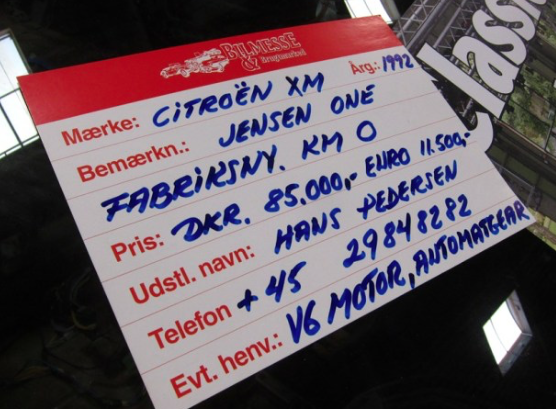 BILMESSE
& Brugtmarked
Mærke: CITROËN XM Årg.: 1992
Bemærkn.: JENSEN ONE
FABRIKSNY. KM 0
Pris: DKR. 85.000,- EURO 11.500,-
Udstl. navn: HANS PEDERSEN
Telefon +45 29848282
Evt. henv.: V6 MOTOR, ANTOMATGEAR
Classic